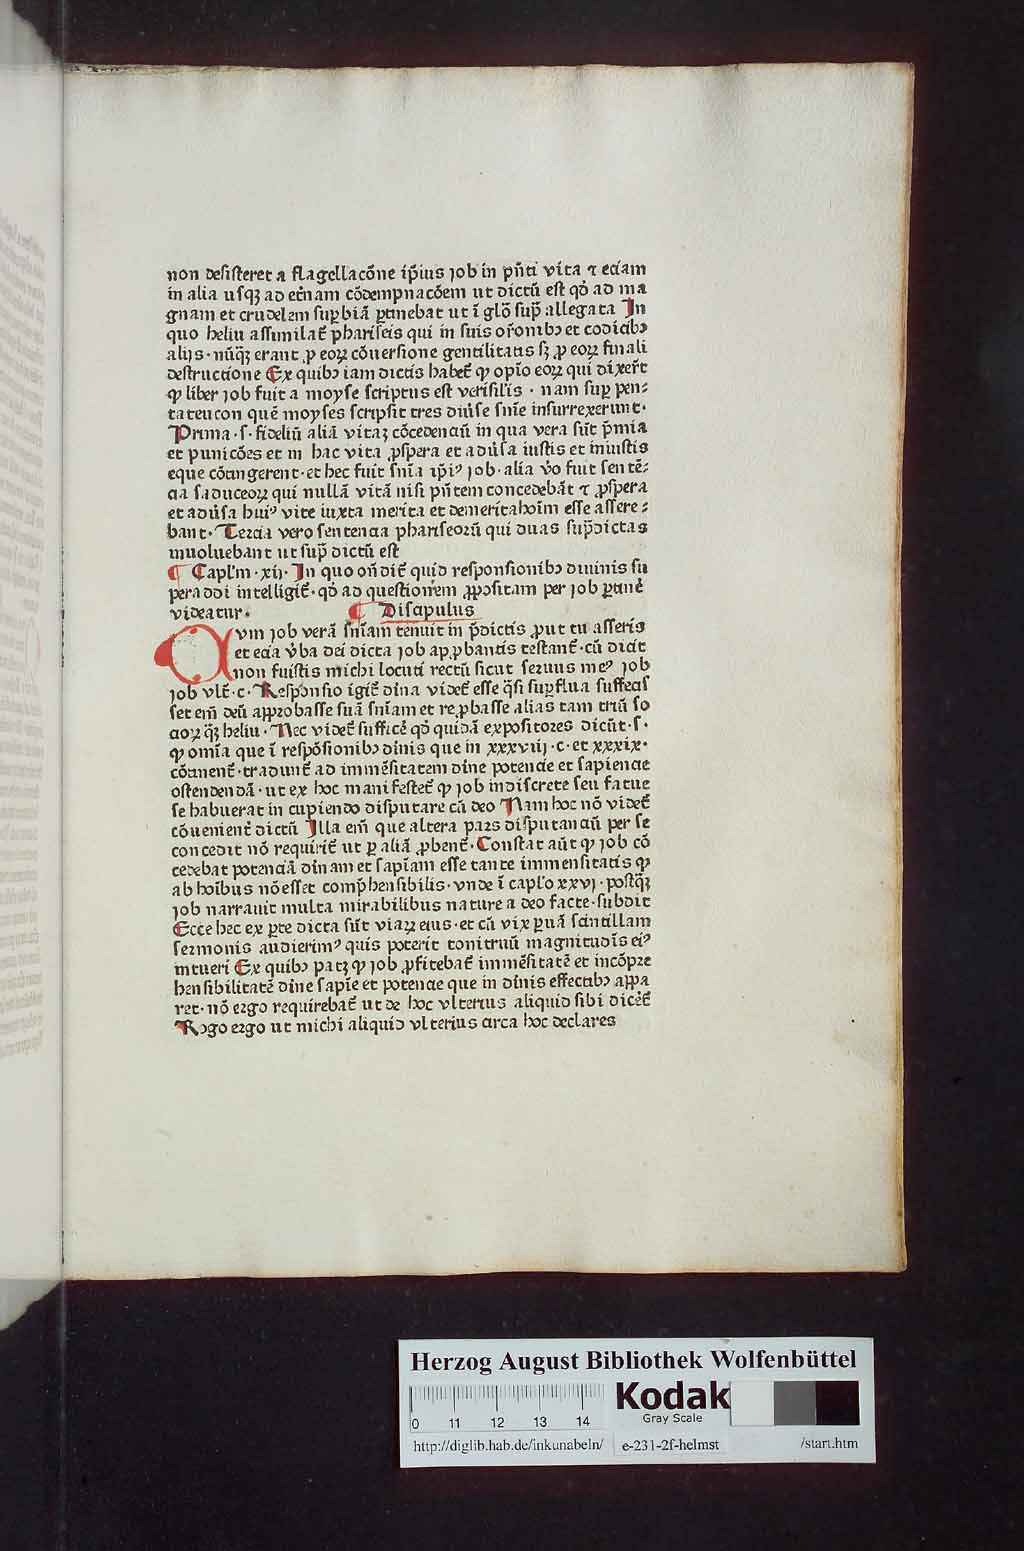 non desisteret a flagellacõne ip̃ius job in pñti vita ⁊ eciam
in alia usqꝫ ad et̃nam cõdempnacõem ut dictũ est qd̾ ad ma
gnam et crudelem sup̱biã p̱tinebat ut ĩ glõ sup̃ allegata In
quo heliu assimilat̃ phariseis qui in suis or̃onibꝰ et codicibꝰ
alijs · nũqꝫ erant ꝓ eoꝝ cõuersione gentilitatis sꝫ ꝓ eoꝝ finali
destructione Ex quibꝰ iam dictis habet̃ ꝙ opĩo eoꝝ qui dixer̃t
ꝙ liber job fuit a moyse scriptus est verisil̃is · nam sup̱ pen⸗
tateucon quẽ moyses scripsit tres diũse snĩe insurrexerunt·
Prima · s · fideliũ aliã vitaꝫ cõcedenciũ in qua vera sũt p̃mia
et punicões et in hac vita ꝓspera et adũsa iustis et iniustis
eque cõtingerent · et hec fuit snĩa ip̃iꝰ job · alia ṽo fuit sentẽ⸗
cia saduceoꝝ qui nullã vitã nisi pñtem concedebãt ⁊ ꝓspera
et adũsa huiꝰ vite iuxta merita et demerita hoĩm esse assere⸗
bant · Tercia vero sentencia phariseorũ qui duas sup̃dictas
inuoluebant ut sup̃ dictũ est
¶ Capl̃m · xij · In quo oñdit̃ quid responsionibꝰ diuinis su
pera ddi intelligit̃ · qd̾ ad questionem ꝓpositam per job p̱tinẽ
videatur · ¶ Discipulus
Cvm job verã snĩam tenuit in p̃dictis ꝓut tu asseris
et eciã ṽba dei dicta job apꝓbantis testant̃ · cũ dicit
non fuistis michi locuti rectũ sicut seruus meꝰ job
job vlt̃ · c · Responsio igit̃ diĩna videt̃ esse q̃si sup̱flua suffecis
set em̃ deũ approbasse suã snĩam et reꝓbasse alias tam triũ so
cioꝝ q̃ꝫ heliu · Nec videt̃ sufficẽ qd̾ quidã expositores dicũt · s ·
ꝙ om̃ia que ĩ respõsionibꝰ diĩnis que in xxxviij · c · et xxxix ·
cõtinent̃ · tradunt̃ ad immẽsitatem diĩne potencie et sapiencie
ostendendã · ut ex hoc manifestet̃ ꝙ job indiscrete seu fatue
se habuerat in cupiendo disputare cũ deo Nam hoc nõ videt̃
cõuenient̃ dictũ Illa em̃ que altera pars disputanciũ per se
concedit nõ requirit̃ ut p̱ aliã ꝓbent̃ · Constat aũt ꝙ job cõ
cedebat potenciã diĩnam et sapĩam esse tante immensitatis ꝙ
ab hoĩbus nõ esset comp̃hensibilis · vnde ĩ capl̃o xxvj · postq̃ꝫ
job narrauit multa mirabilibus nature a deo facte · subdit
Ecce hec ex p̱te dicta sũt viaꝝ eius · et cũ vix p̱uã scintillam
sermonis audierimꝰ quis poterit tonitruũ magnitudis eiꝰ
intueri Ex quibꝰ patꝫ ꝙ job ꝓfitebat̃ immẽsitatẽ et incõpre
hensibilitatẽ diĩne sapiẽ et potencie que in diĩnis effectibꝰ appa
ret · nõ ergo requirebat̃ ut de hoc vlterius aliquid sibi dicet̃
Rogo ergo ut michi aliquid vlterius circa hoc declares
Herzog August Bibliothek Wolfenbüttel
0 11 12 13 14
Kodak
Gray Scale
http://diglib.hab.de/inkunabeln/ e-231-2f-helmst /start.htm